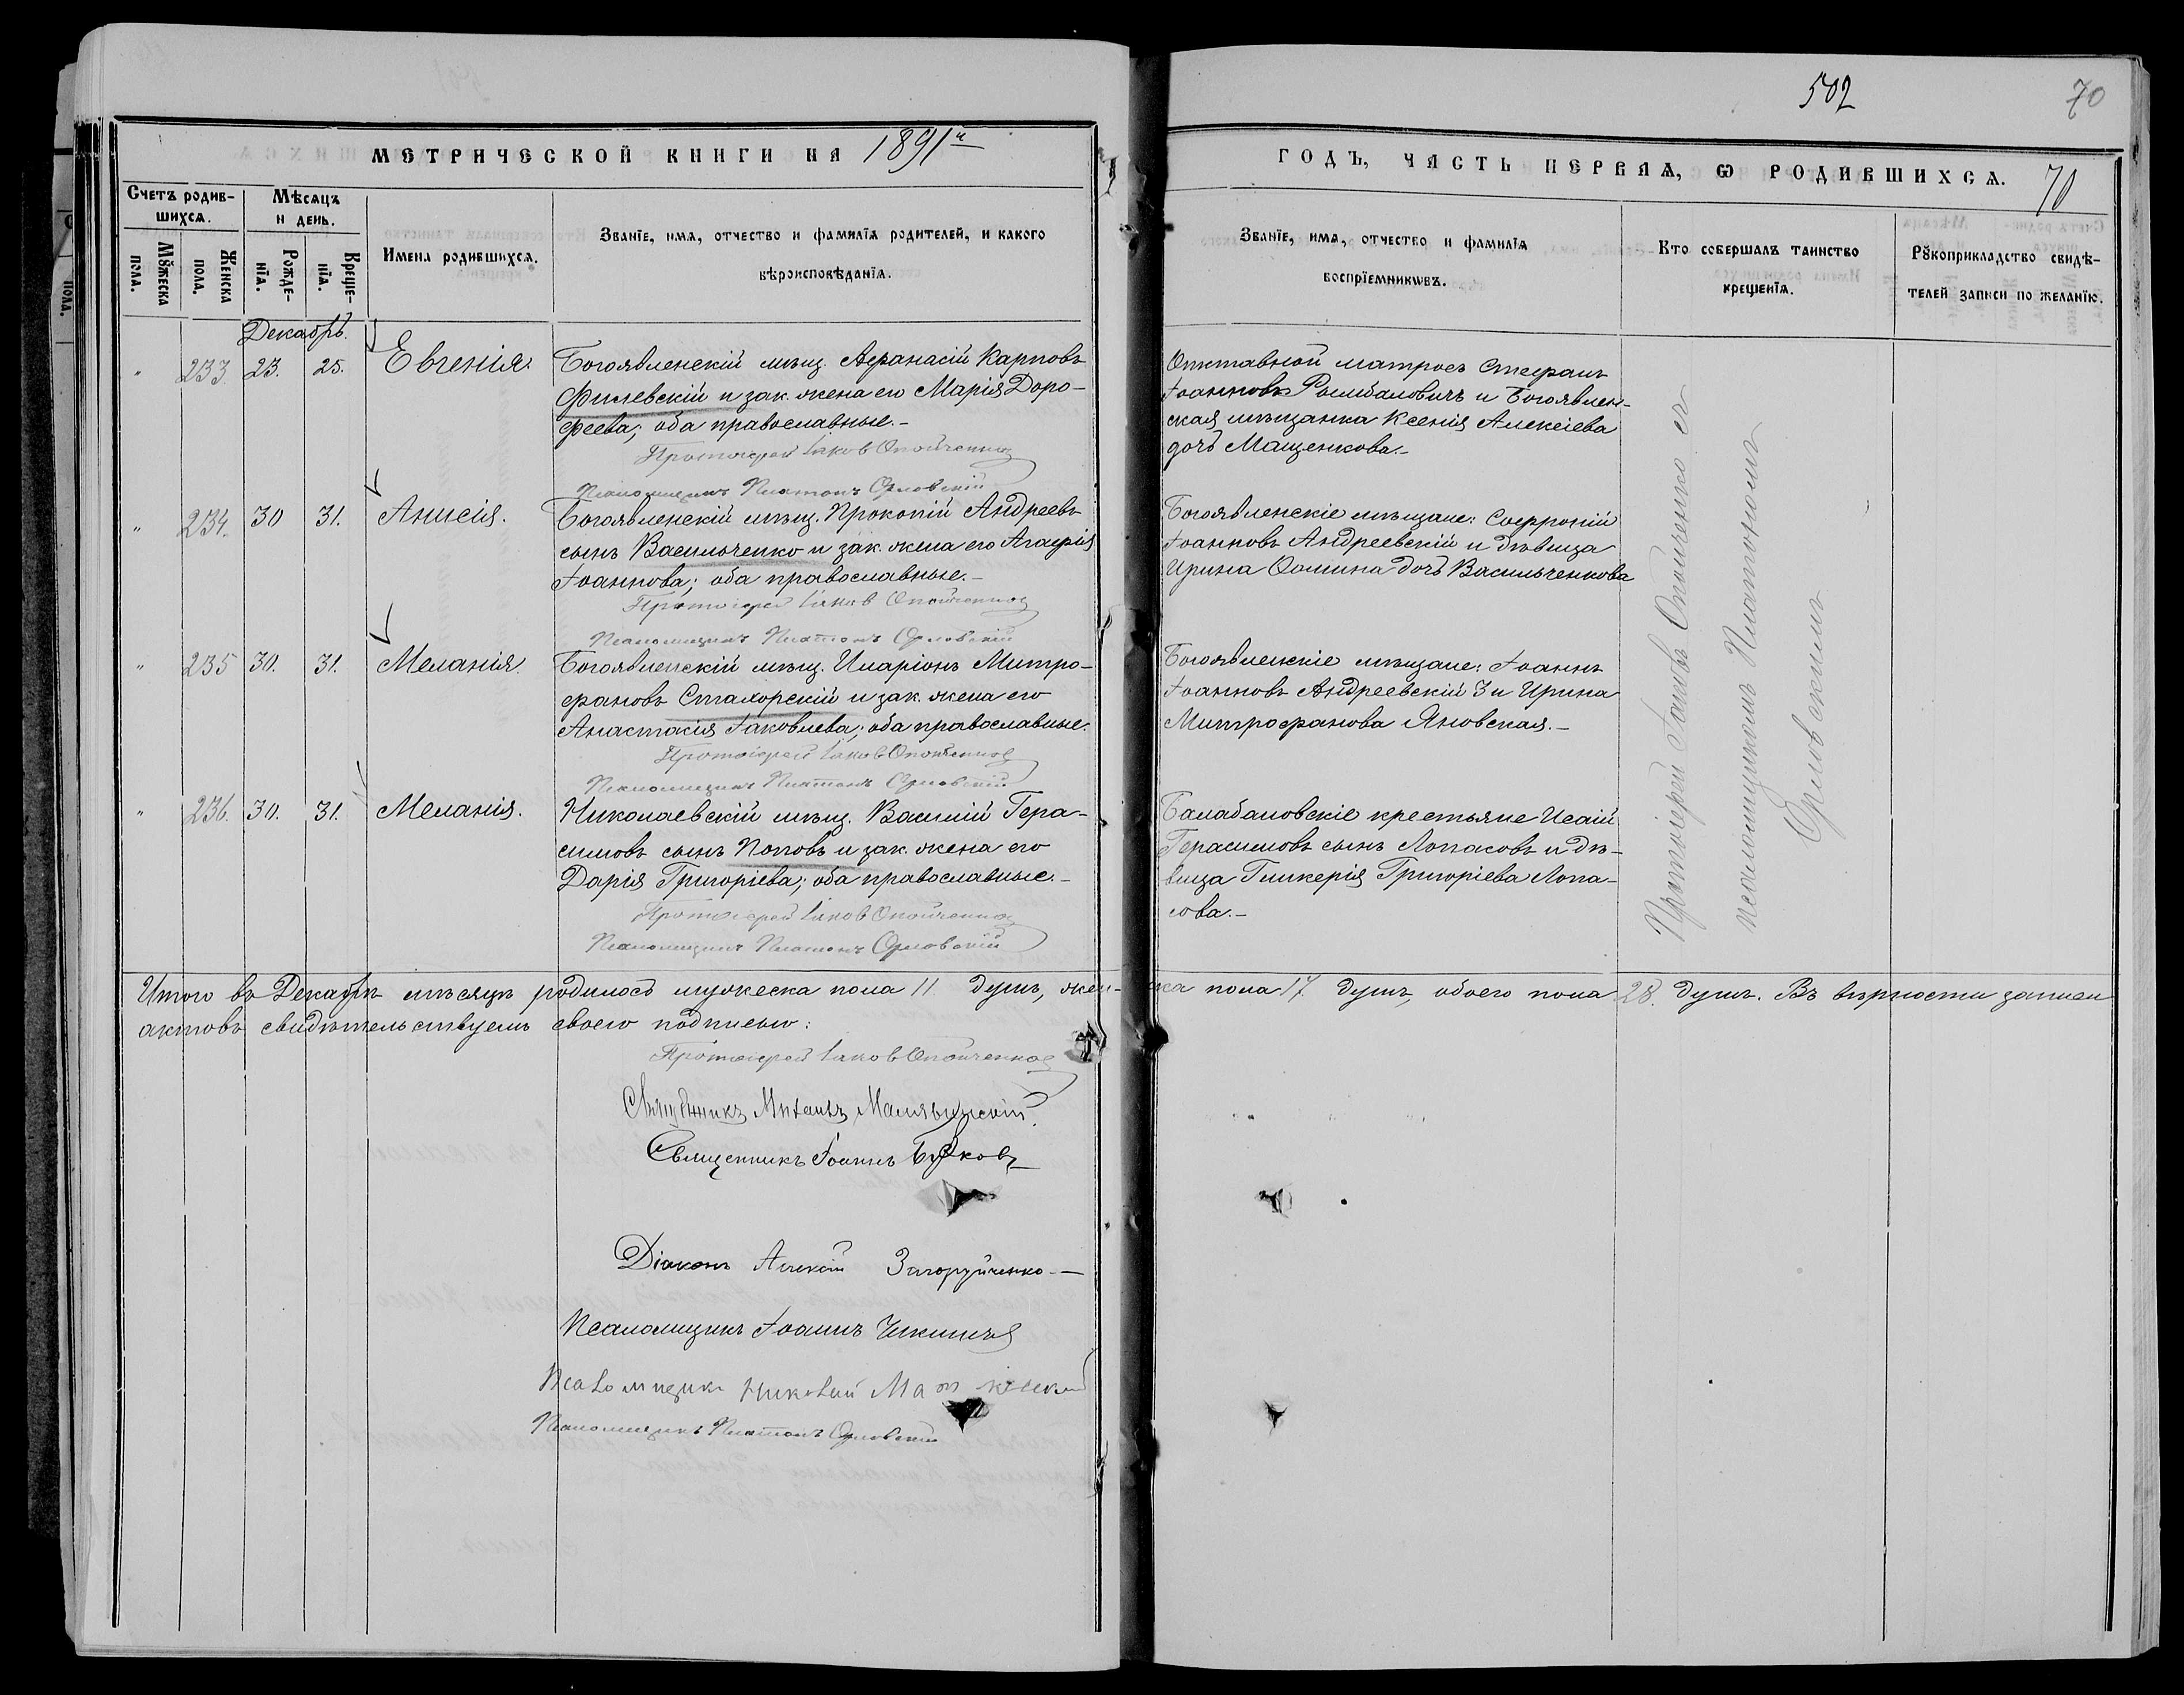 502
70
МЕТРИЧЕСКОЙ КНИГИ НА 1891й
ГОДЪ, ЧАСТЬ ПЕРВАЯ, Ѡ РОДИВШИХСѦ. 70
Счетъ родив-
шихсѧ.
Мѣсѧцъ
и день.
Мꙋжеска
пола.
Женска
пола.
Рожде-
нїѧ.
Креще-
нїѧ.
Имена родившихсѧ.
Званїе, имѧ, отчество и фамилїѧ родителей, и какого
вѣроисповѣданїѧ.
Званїе, имѧ, отчество и фамилїѧ
воспрїемникѡвъ.
Кто совершалъ таинство
крещенїѧ.
Рꙋкоприкладство свидѣ-
телей записи по желанїю.
Декабрь.
" 233. 23. 25. Евгенія.
Богоявленскій мѣщ. Аѳанасій Карповъ
Филевскій и зак. жена его Марія Доро-
ѳеева; оба православные.-
Протоіерей Іаковъ Опойченко
Псаломщикъ Платонъ Орловскій
Отставной матросъ Стефанъ
Іоанновъ Рымбаловичъ и Богоявлен-
ская мѣщанка Ксенія Алексіева
дочь Мащенкова.-
" 234. 30 31. Анисія.
Богоявленскій мѣщ. Прокопій Андреевъ
сынъ Васильченко и зак. жена его Агафія
Іоаннова; оба православные.-
Протоіерей Іаковъ Опойченко
Псаломщикъ Платонъ Орловскій
Богоявленскіе мѣщане: Софроній
Іоанновъ Андреевскій и дѣвица
Ирина Ѳомина дочь Васильченкова
" 235 30. 31. Меланія.
Богоявленскій мѣщ. Иларіонъ Митро-
фановъ Стахорскій и зак. жена его
Анастасія Іаковлева; оба православные.
Протоіерей Іаковъ Опойченко
Псаломщикъ Платонъ Орловскій
Богоявленскіе мѣщане: Іоаннъ
Іоанновъ Андреевскій 3 и Ирина
Митрофанова Яновская.-
" 236. 30. 31. Меланія.
Николаевскій мѣщ. Василій Гера-
симовъ сынъ Поповъ и зак. жена его
Дарія Григоріева; оба православные.-
Протоіерей Іаковъ Опойченко
Псаломщикъ Платонъ Орловскій
Балабановскіе крестьяне Исаій
Герасимовъ сынъ Лопасовъ и дѣ-
вица Гликерія Григоріева Лопа-
сова.-
Протоіерей Іаковъ Опойченко съ
псаломщикомъ Платономъ
Орловскимъ
Итого въ Декабрѣ мѣсяцѣ родилось мужеска пола 11 душъ, жен-ска пола 17. душъ, обоего пола 28. душъ. Въ вѣрности записи
актовъ свидѣтельствуемъ своего подписью:
Протоіерей Іаковъ Опойченко
Священникъ Михаилъ
Священникъ Іоаннъ
Діаконъ Алексій Загоруйченко
Псаломщикъ Іоаннъ
Псаломщикъ Николай
Псаломщикъ Платонъ Орловскій